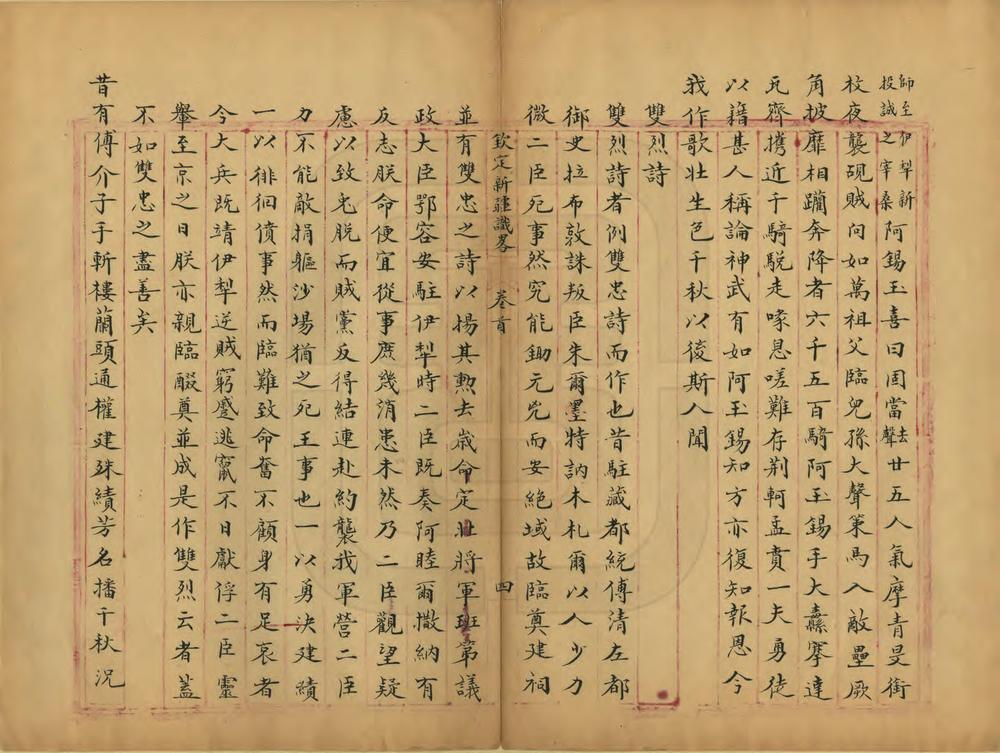 師至伊犁新
投誠之宰桑阿錫玉喜曰固當去聲廿五人氣摩青旻銜
枚夜襲硯賊向如萬祖父臨兒孫大聲策馬入敵壘厥
角披靡相躪奔降者六千五百騎阿玉錫手大纛搴達
瓦齊攜近千騎駾走喙息嗟難存荊軻孟賁一夫勇徒
以藉甚人稱論神武有如阿玉錫知方亦復知報恩今
我作歌壯生色千秋以後斯人聞
雙烈詩
雙烈詩者例雙忠詩而作也昔駐藏都統傅清左都
御史拉布敦誅叛臣朱爾墨特訥木札爾以人少力
微二臣死事然究能鋤元兇而安絕域故臨奠建祠
欽定新疆識畧 卷首 四
並有雙忠之詩以揚其勲去歲命定壯將軍班第議
政大臣鄂容安駐伊犁時二臣既奏阿睦爾撒納有
反志朕命便宜從事庶幾消患未然乃二臣觀望疑
慮以致兎脫而賊黨反得結連赴約襲我軍營二臣
力不能敵捐軀沙場猶之死王事也一以勇決建績
一以徘徊僨事然而臨難致命奮不顧身有足哀者
今大兵既靖伊犁逆賊窮蹙逃竄不日獻俘二臣靈
轝至京之日朕亦親臨醊奠並成是作雙烈云者蓋
不如雙忠之盡善矣
昔有傅介子手斬樓蘭頭通權建殊績芳名播千秋況